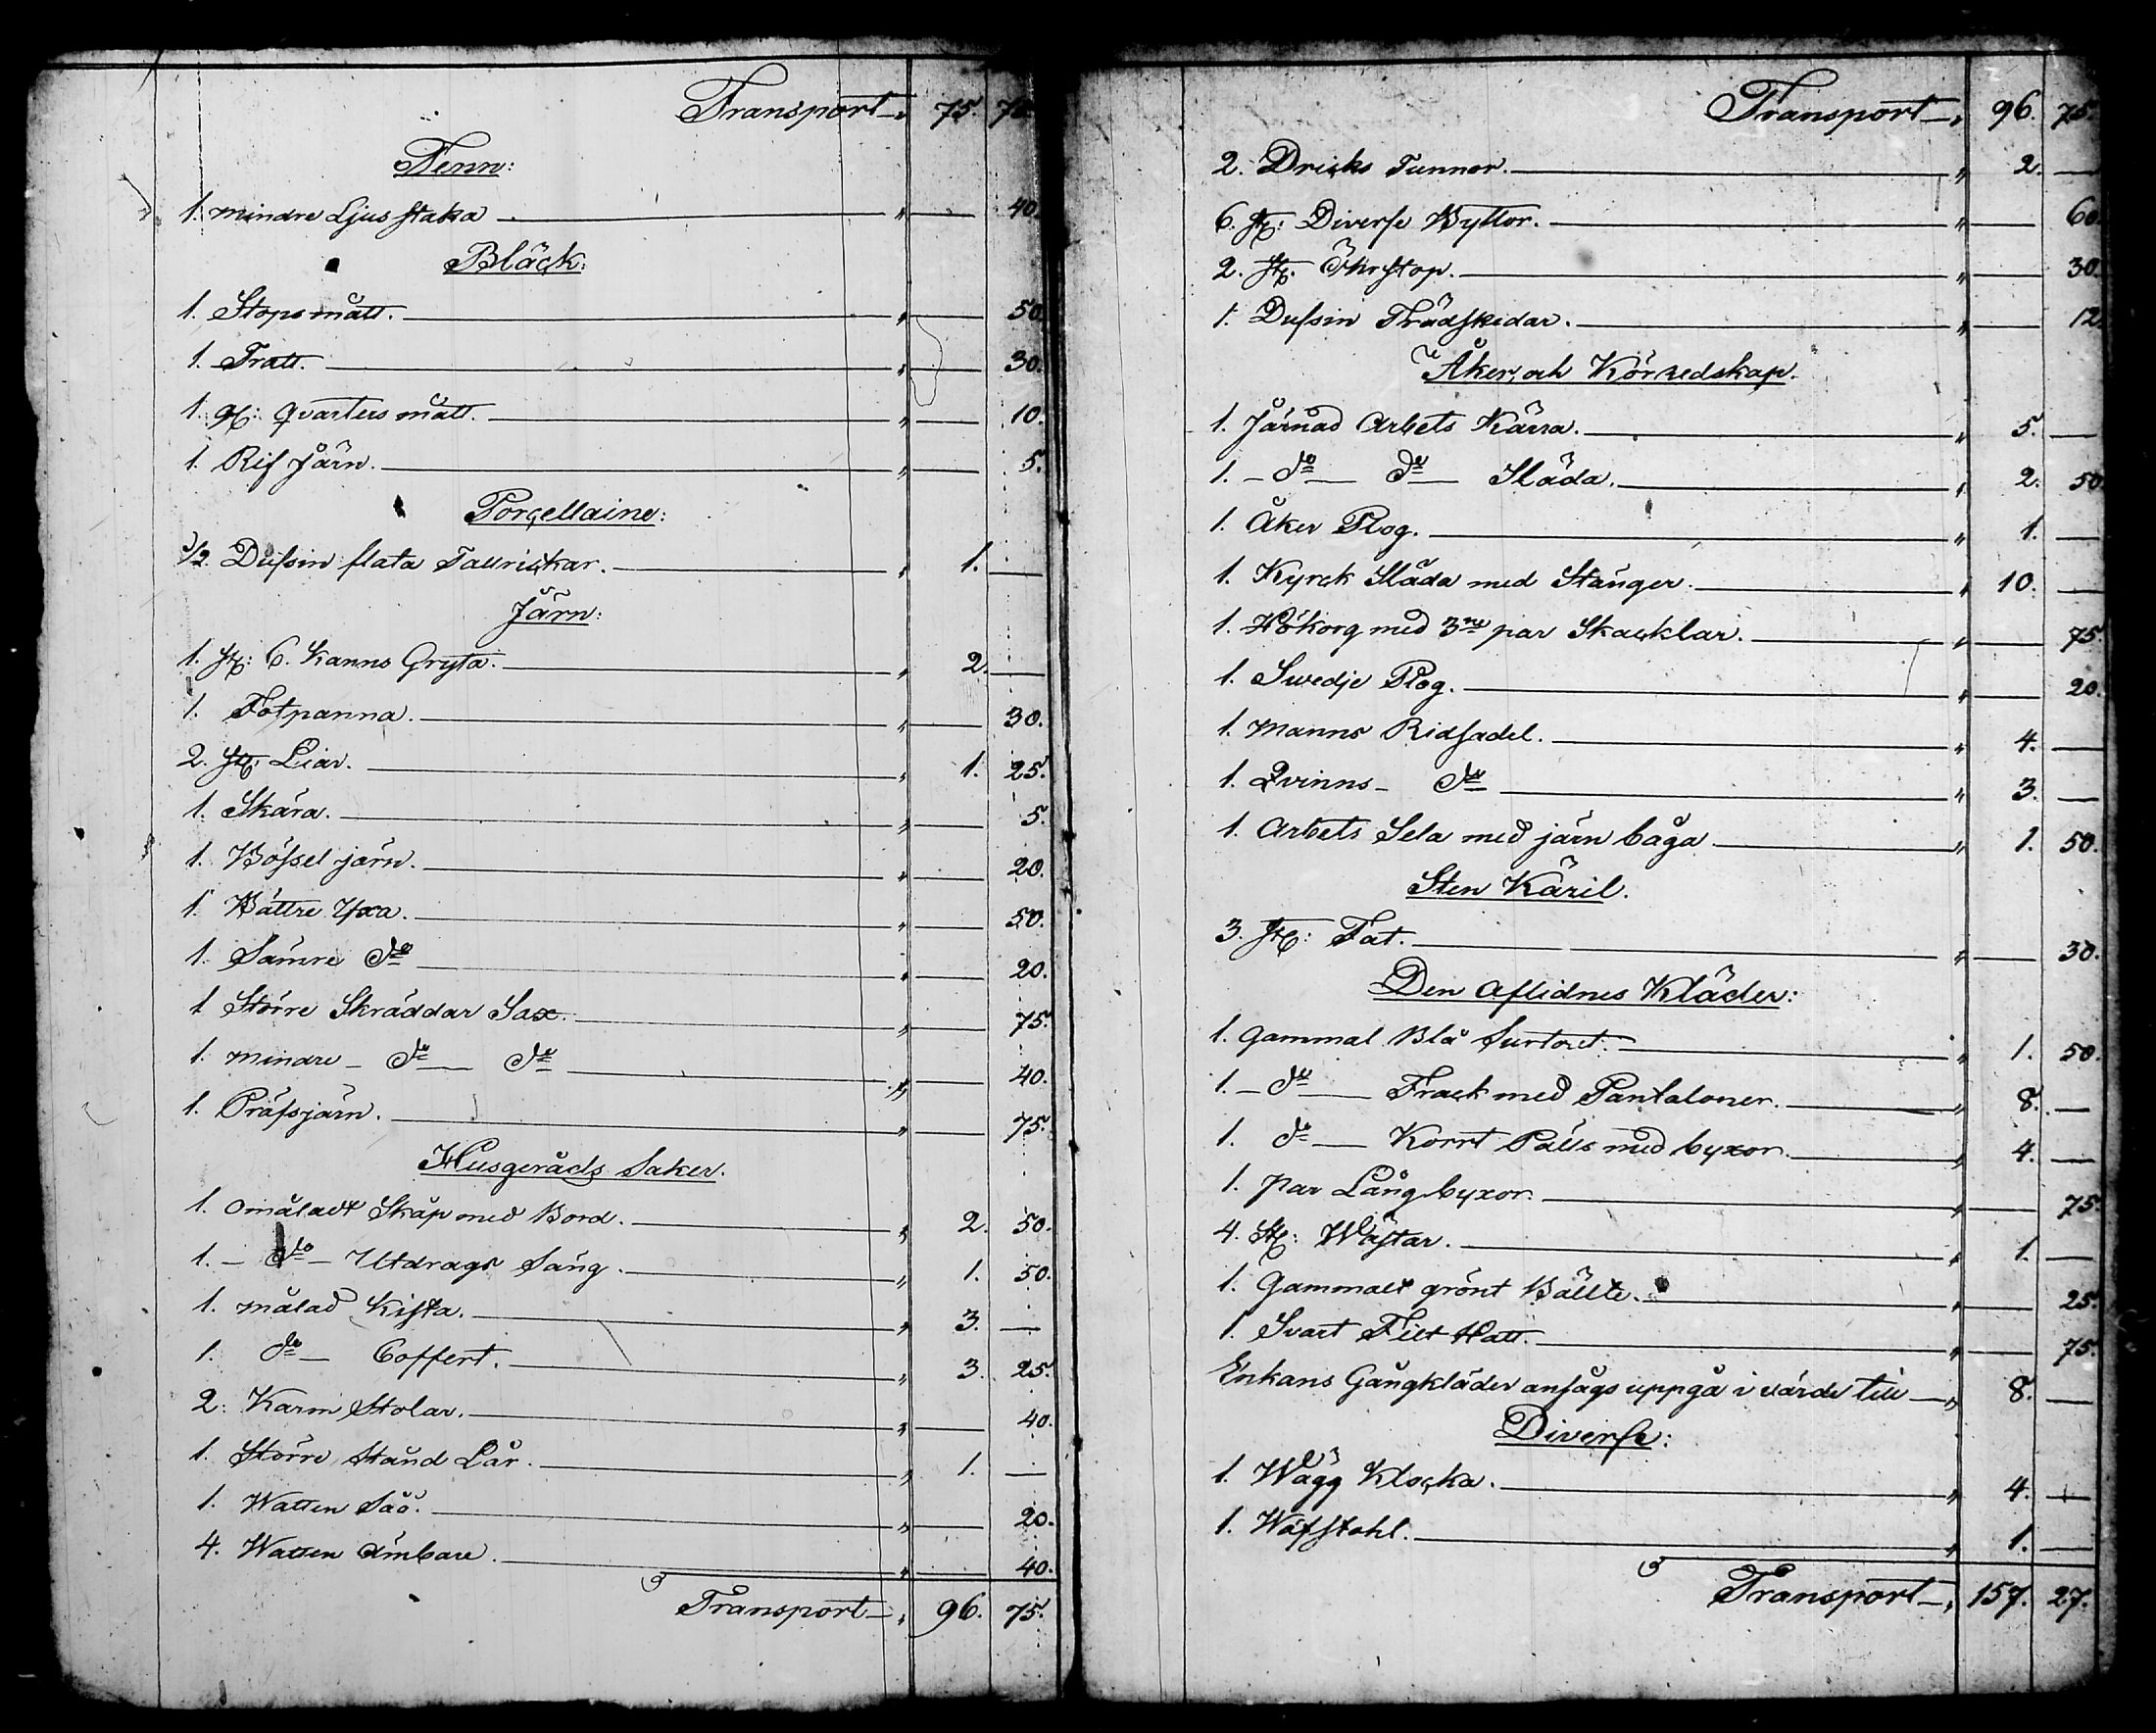 Transport 75. 70.
Tenn:
1. mindre Ljusstaka 40.
Bläck:
1. Stopsmått. 50.
1. Tratt. 30.
1. st: qvartersmått. 10.
1. Rif Järn. 5.
Porcellaine:
1/2. Dussin flata Tallrickar. 1. —
Järn:
1. st: 6. Kanns Gryta. 2. —
1. Fotpanna. 30.
2. st: Liar. 1. 25.
1. Skära. 5.
1. Bössel järn. 20.
1. Bättre Yxa. 50.
1. Sämre do 20.
1 Större Skräddar Sax. 75.
1. mindre do do 40.
1. Prässjärn. 75.
Husgeråds Saker.
1. omåladt Skåp med Bord. 2. 50.
1. do Utdrags Säng. 1. 50.
1. målad Kista. 3. —
1. do Coffert. 3. 25.
2. Karm Stolar. 40.
1. Större Stånd Lår. 1. —
1. Watten Såå. 20.
4. Watten ämbare. 40.
Transport 96. 75.
Transport 96. 75.
2. Dricks Tunnor. 2. —
6. st: Diverse Byttor. 60.
2. st. Öhrstop. 30.
1. Dussin Trädskedar. 12.
Åker, och Körredskap.
1. Järnad Arbets Kärra. 5. —
1. do do Släda. 2. 50.
1. Åker Plog. 1. —
1. Kyrck Släda med Stänger. 10. —
1. Hökorg med 3ne par Skacklar. 75.
1. Swedje Plog. 20.
1. Manns Ridsadel. 4. —
1. Qvinns do 3. —
1. Arbets Sela med järn båga 1. 50.
Sten Käril.
3. st: Fat. 30.
Den Aflidnes Kläder:
1. Gammal Blå Surtout. 1. 50.
1. do Frack med Pantaloner. 8. —
1. do Korrt Päls med byxor. 4. —
1. par Långbyxor. 75.
4. st: Wästar. 1. —
1. Gammalt grönt Bällte. 25.
1. Svart Filt Hatt. 75.
Enkans Gångkläder ansågs uppgå i värde till 8. —
Diverse:
1. Wägg Klocka. 4. —
1. Wäfstohl. 1. —
Transport 157. 27.